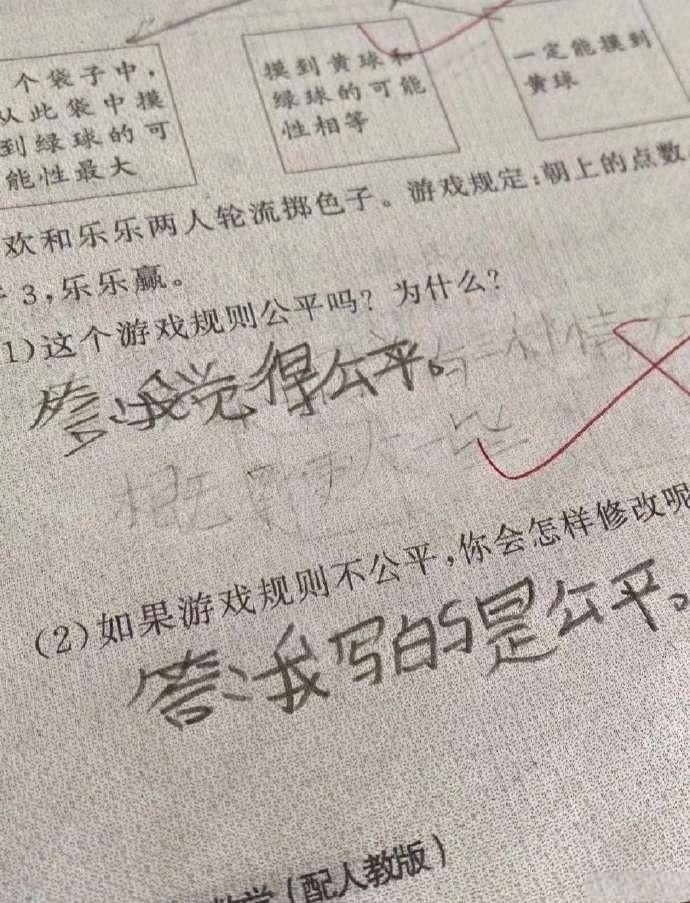 个袋子中，
从此袋中摸
到绿球的可
能性最大
摸到黄球和
绿球的可能
性相等
一定能摸到
黄球
欢和乐乐两人轮流掷色子。游戏规定：朝上的点数
3，乐乐赢。
1)这个游戏规则公平吗？为什么？
答：我觉得公平。
(2)如果游戏规则不公平，你会怎样修改呢
答：我写的是公平。
数学（配人教版）